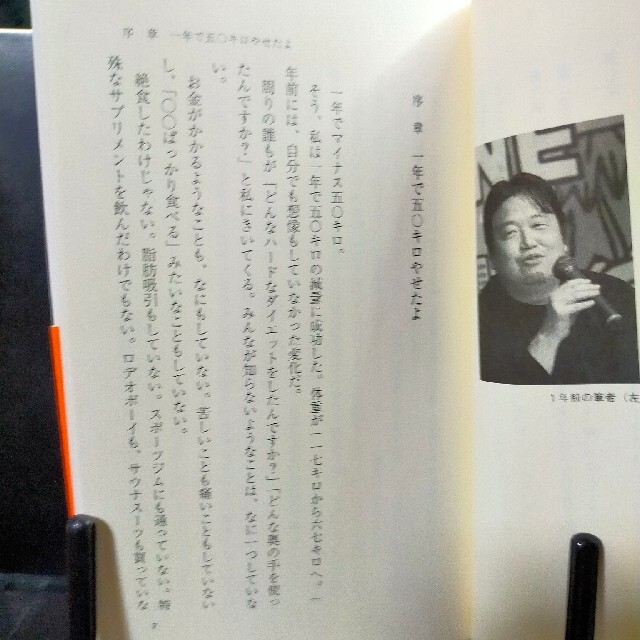 序　章　一年で五〇キロやせたよ
序　章　一年で五〇キロやせたよ
一年でマイナス五〇キロ。
そう、私は一年で五〇キロの減量に成功した。体重が一一七キロから六七キロへ。一
年前には、自分でも想像もしていなかった変化だ。
周りの誰もが「どんなハードなダイエットをしたんですか？」「どんな奥の手を使っ
たんですか？」と私にきいてくる。みんなが知らないようなことは、なに一つしていな
い。
お金がかかるようなことも、なにもしていない。苦しいことも痛いこともしていない
し。「〇〇ばっかり食べる」みたいなこともしていない。
絶食したわけじゃない。脂肪吸引もしていない。スポーツジムにも通っていない。特
殊なサプリメントを飲んだわけでもない。ロデオボーイも、サウナスーツも買っていな
1年前の筆者（左